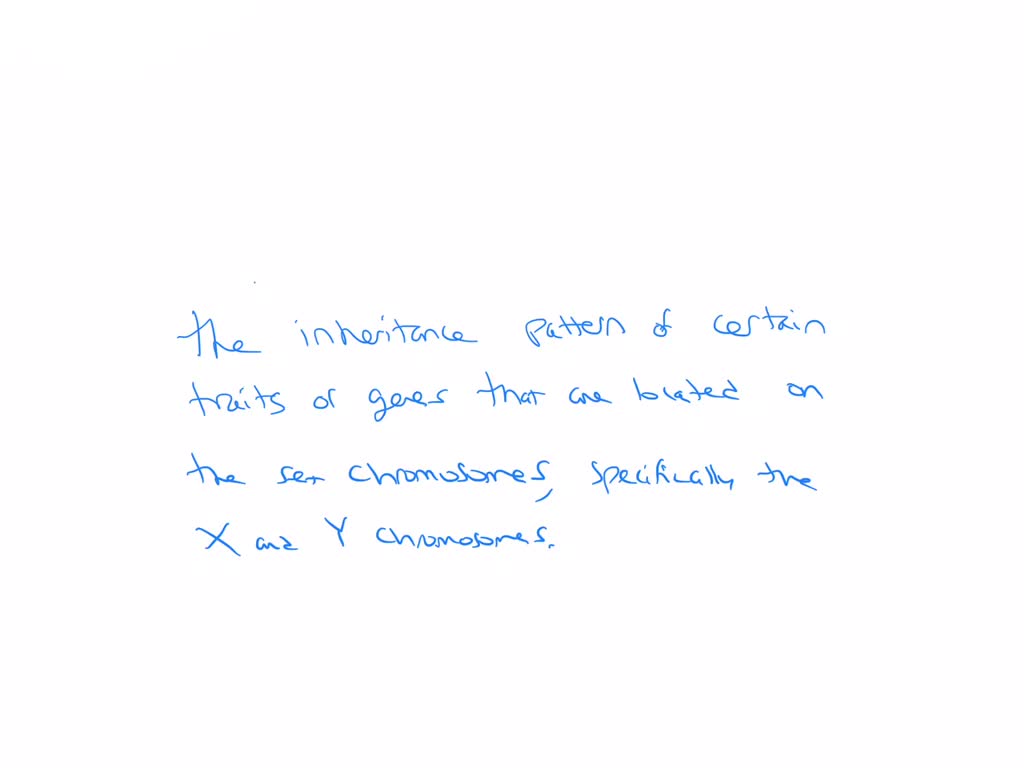 The inheritance pattern of certain
traits or genes that are located on
the sex chromosomes, specifically the
X and Y chromosomes.